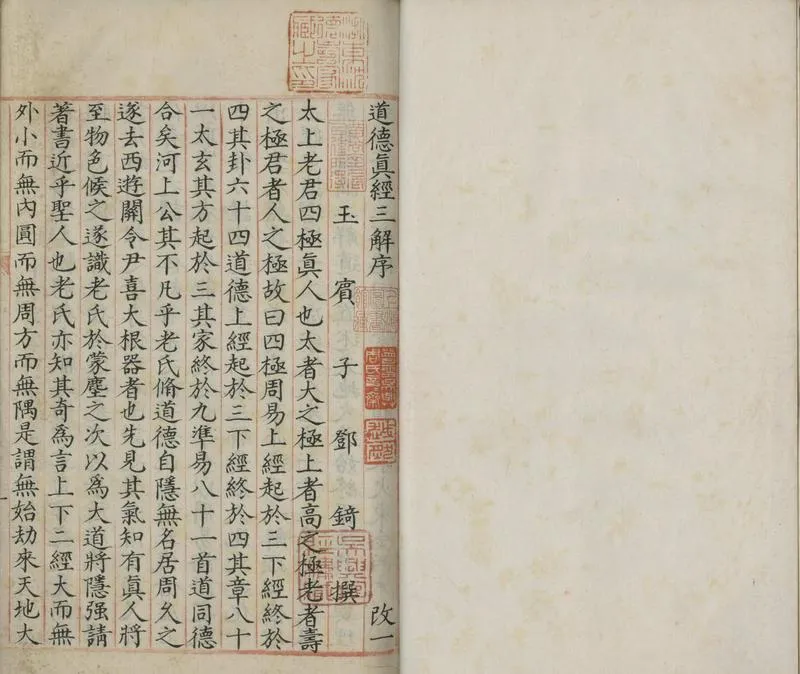 道德眞經三解序 改一
玉賓子鄧錡撰
太上老君四極眞人也太者大之極上者高之極老者壽
之極君者人之極故曰四極周易上經起於三下經終於
四其卦六十四道德上經起於三下經終於四其章八十
一太玄其方起於三其家終於九準易八十一首道同德
合矣河上公其不凡乎老氏脩道德自隱無名居周久之
遂去西遊關令尹喜大根器者也先見其氣知有眞人將
至物色候之遂識老氏於蒙塵之次以爲大道將隱强請
著書近乎聖人也老氏亦知其奇爲言上下二經大而無
外小而無內圓而無周方而無隅是謂無始劫來天地大